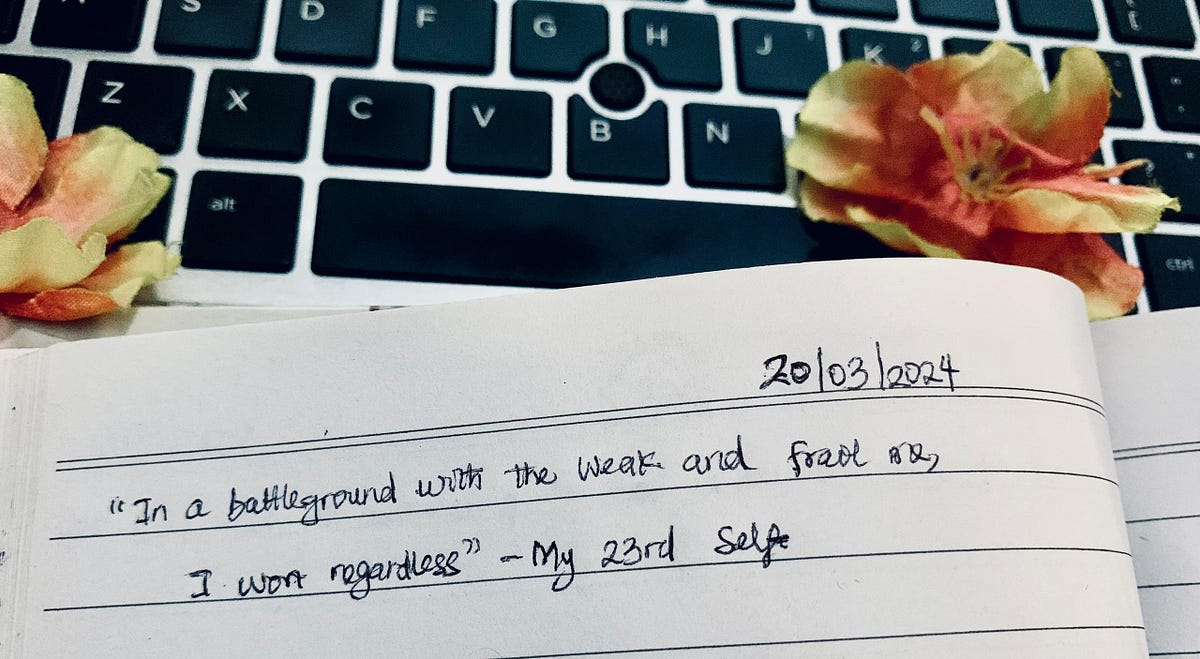 S D F G H J 1 K 2
Z X C V B N
alt
ctrl
20/03/2024
“In a battleground with the weak and frail me,
I won regardless” - My 23rd Self